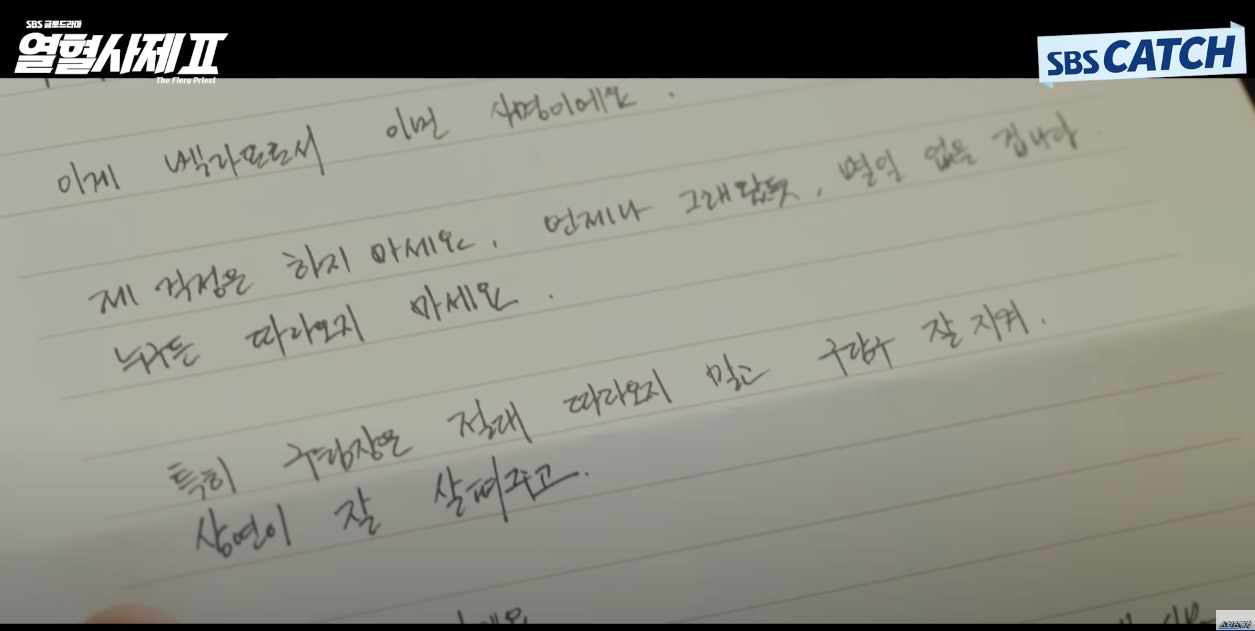 SBS 금토드라마
열혈사제 II
The Fiery Priest
SBS CATCH
이게 벨라또로서 이번 사명이에요.
제 걱정은 하지 마세요. 언제나 그래왔듯, 별일 없을 겁니다.
누구든 따라오지 마세요.
특히 구팀장은 절대 따라오지 말고 구담구 잘 지켜.
상연이 잘 살펴주고.